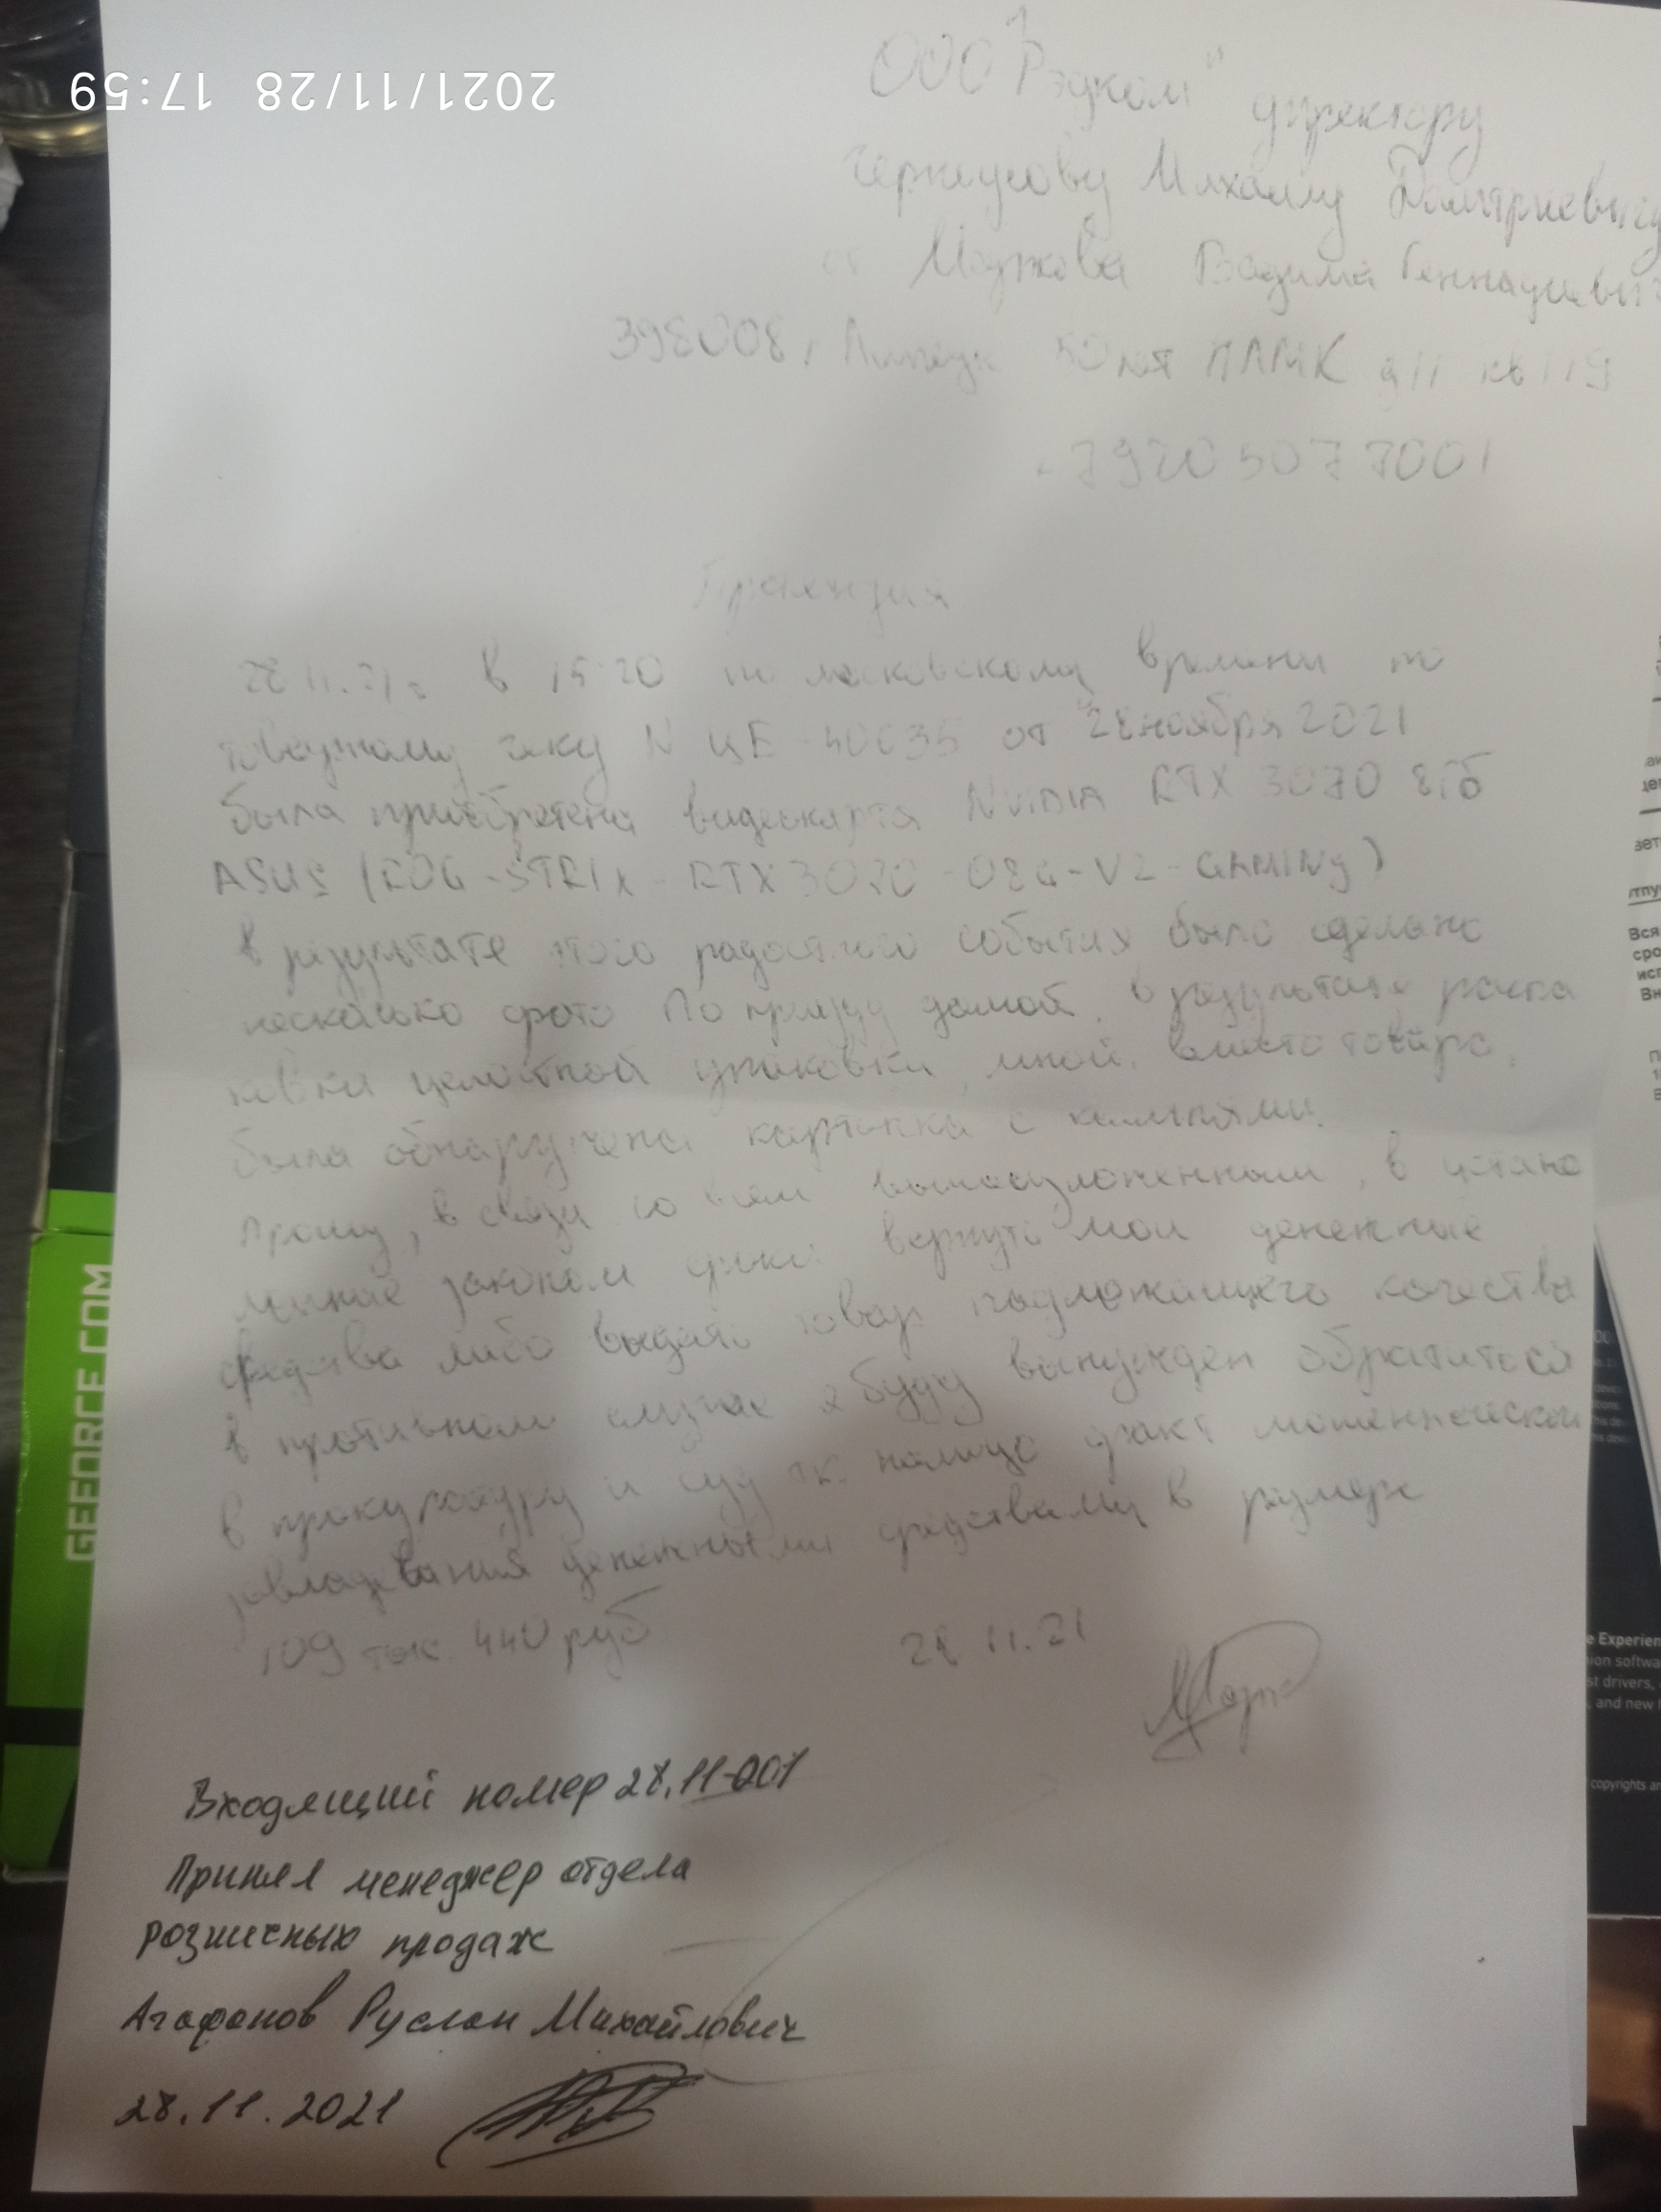 2021/11/28 17:59
ООО "Рэдком" директору
Михаилу Дмитриевичу
от Вадима Геннадиевич
398008 г Липецк 50 лет НЛМК д 11 кв 119
79205077001
Претензия
28.11.21г в 15:20 по московскому времени по
товарному чеку N ЦБ-40635 от "28 ноября 2021
была приобретена видеокарта NVIDIA RTX 3070 8Гб
ASUS (ROG-STRIX-RTX3070-O8G-V2-GAMING)
в результате этого радостного события было сделано
несколько фото По приезду домой, в результате распа
ковки целостной упаковки, мной, вместо товара,
была обнаружена картонка с камнями.
Прошу, в связи со всем вышеизложенным, в устано
законом сроки вернуть мои денежные
средства либо выдать товар надлежащего качества
в противном случае я буду вынужден обратиться
в прокуратуру и суд т.к. налицо факт мошеннической
завладевания денежными средствами в размере
109 тыс 440 руб 28.11.21
Входящий номер 28.11-001
Принял менеджер отдела
розничных продаж
Агафонов Руслан Михайлович
28.11.2021
GEFORCE.COM
e Experien
ion softwa
st drivers,
, and new
copyrights ar
Вся
сро
исп
Вн